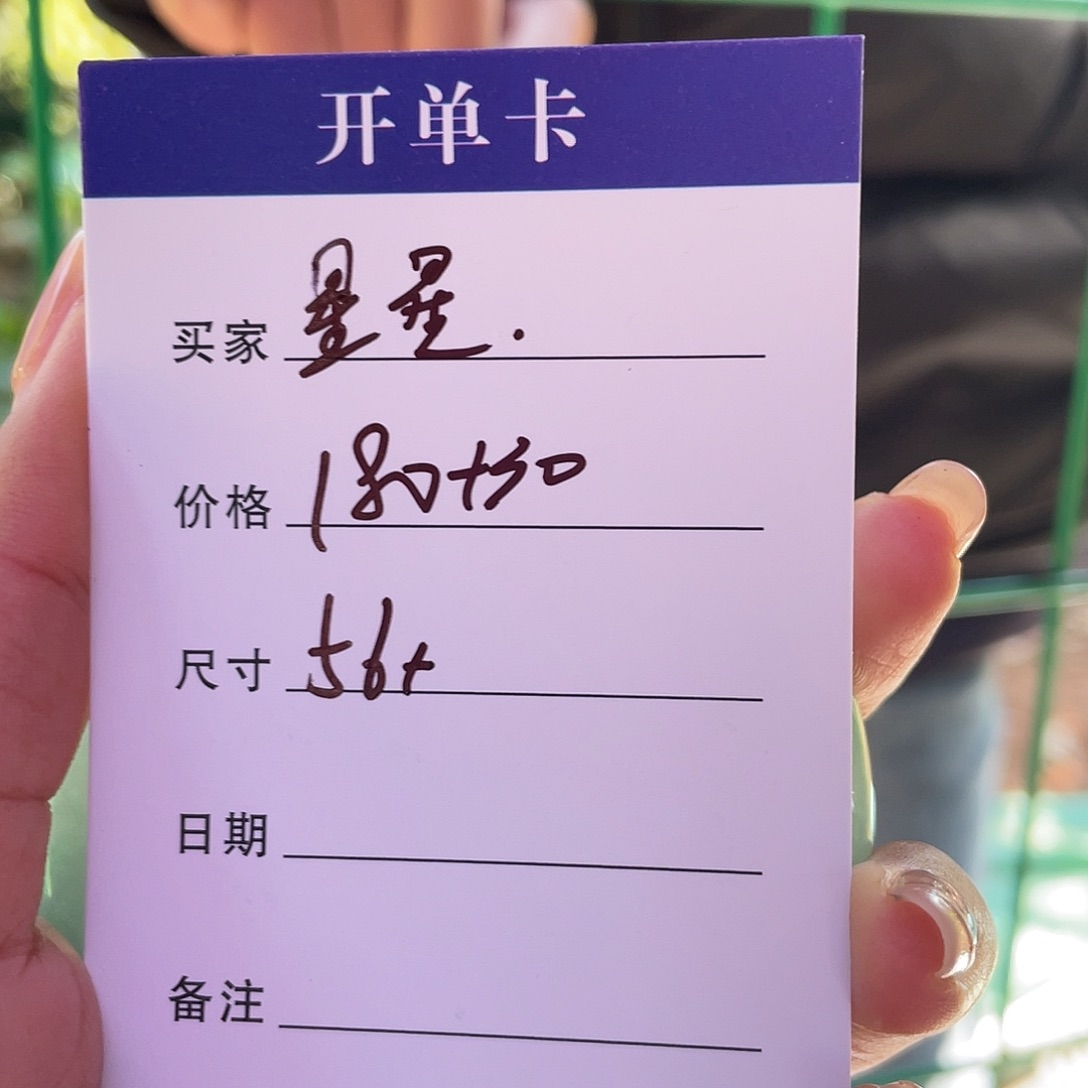 开单卡
买家 星星.
价格 180+50
尺寸 56+
日期
备注